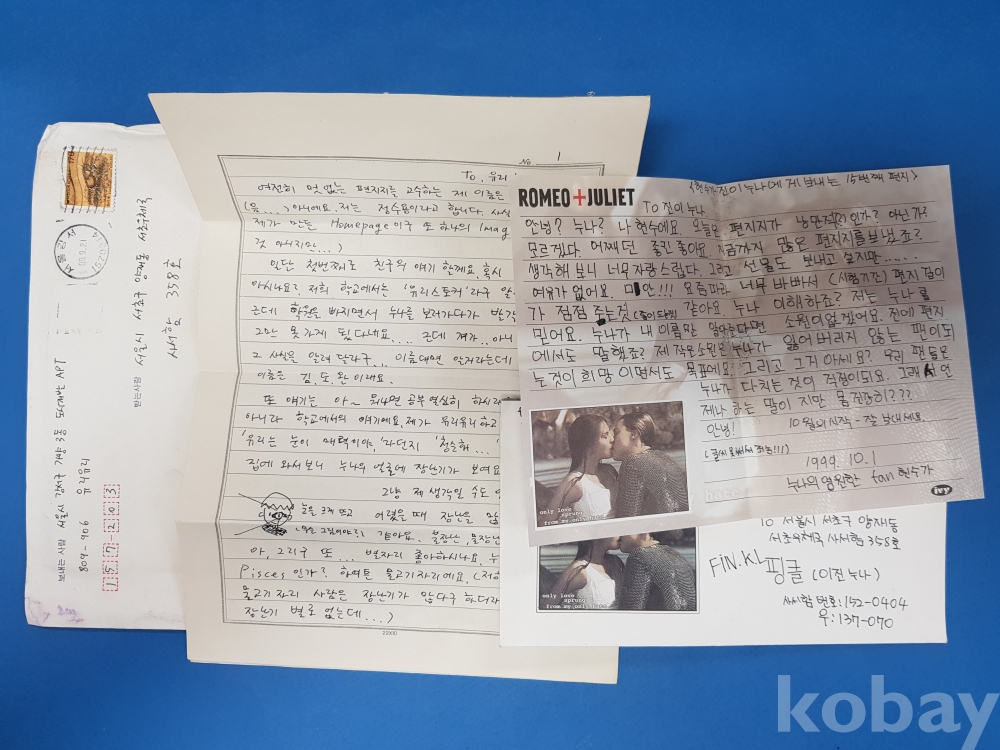 보내는사람 서울시 강서구 가양 3동 도시개발 APT
809-906 유리유리
157-203
받는사람 서울시 서초구 양재동 서초우체국
사서함 358호
No. 1
To. 유리
여전히 멋없는 편지지를 고수하는 제 이름은
(음....) 아니에요. 저는 정수용이라고 합니다. 사실
제가 만든 Homepage이구 또 하나의 imag
것 아니지만...)
일단 첫번째로 친구의 얘기 할께요. 혹시
아시나요? 저희 학교에서는 '유리스토커'라구 알
근데 학원을 빠지면서 누나를 보러가다가 발각
그만 못가게 됬다네요.... 근데 걔가.. 아니
그 사실을 알려 달라구... 이름대면 알거라는데
이름은 김.도.완 이래요.
또 얘기는 아~ 뭐냐면 공부열심히 하시라
아니라 학교에서의 얘기에요. 제가 유리유리하고
'유리는 눈이 매력이야' 라던지 '청순해...
집에 와서 보니 누나의 얼굴에 장난기가 보여요
그냥 제 생각일 수도
눈을 크게 뜨고 어렸을 때 장난을 많
같아요. 불장난, 물장난
아, 그리구 또... 별자리 좋아하시나요. 누
Pisces 인가? 하여튼 물고기자리에요. (저
물고기자리 사람은 장난기가 많다구 하더라
장난기 별로 없는데...)
22X10
ROMEO+JULIET
<현수가 진이 누나에게 보내는 15번째 편지>
To 진이 누나
안녕? 누나? 나 현수에요. 오늘은 편지지가 낭만적인가? 아닌가?
모르겠다. 어쨌던 좋긴 좋아요. 지금까지 많은 편지지를 보냈죠?
생각해 보니 너무 자랑스럽다. 그리고 선물도 보내고 싶지만......
여유가 없어요. 미안!!! 요즘따라 너무 바빠서 (시험기간) 편지 길이
가 점점 주는것 같아요. 누나 이해하죠? 저는 누나를
믿어요. 누나가 내 이름만 알아준다면 소원이 없겠어요. 전에 편지
에서도 말했죠? 제 작은 소원은 누나가 잃어버리지 않는 팬이 되
는것이 희망이면서도 목표에요. 그리고 그거 아세요? 우리 팬들은
누나가 다치는 것이 걱정이되요. 그래서 언
제나 하는 말이 지만 몸 건강히???
안녕! 10월의 시작 - 잘 보내세요.
(글씨 못써서 죄송!!!)
1999. 10. 1
누나의 영원한 fan 현수가
ivy
only love
sprung
from my only hate
To 서울시 서초구 양재동
서초우체국 사서함 358호
FIN.K.L 핑클 (이진 누나)
사서함 번호:152-0404
우:137-070
only love
sprung
from my only hate
kobay